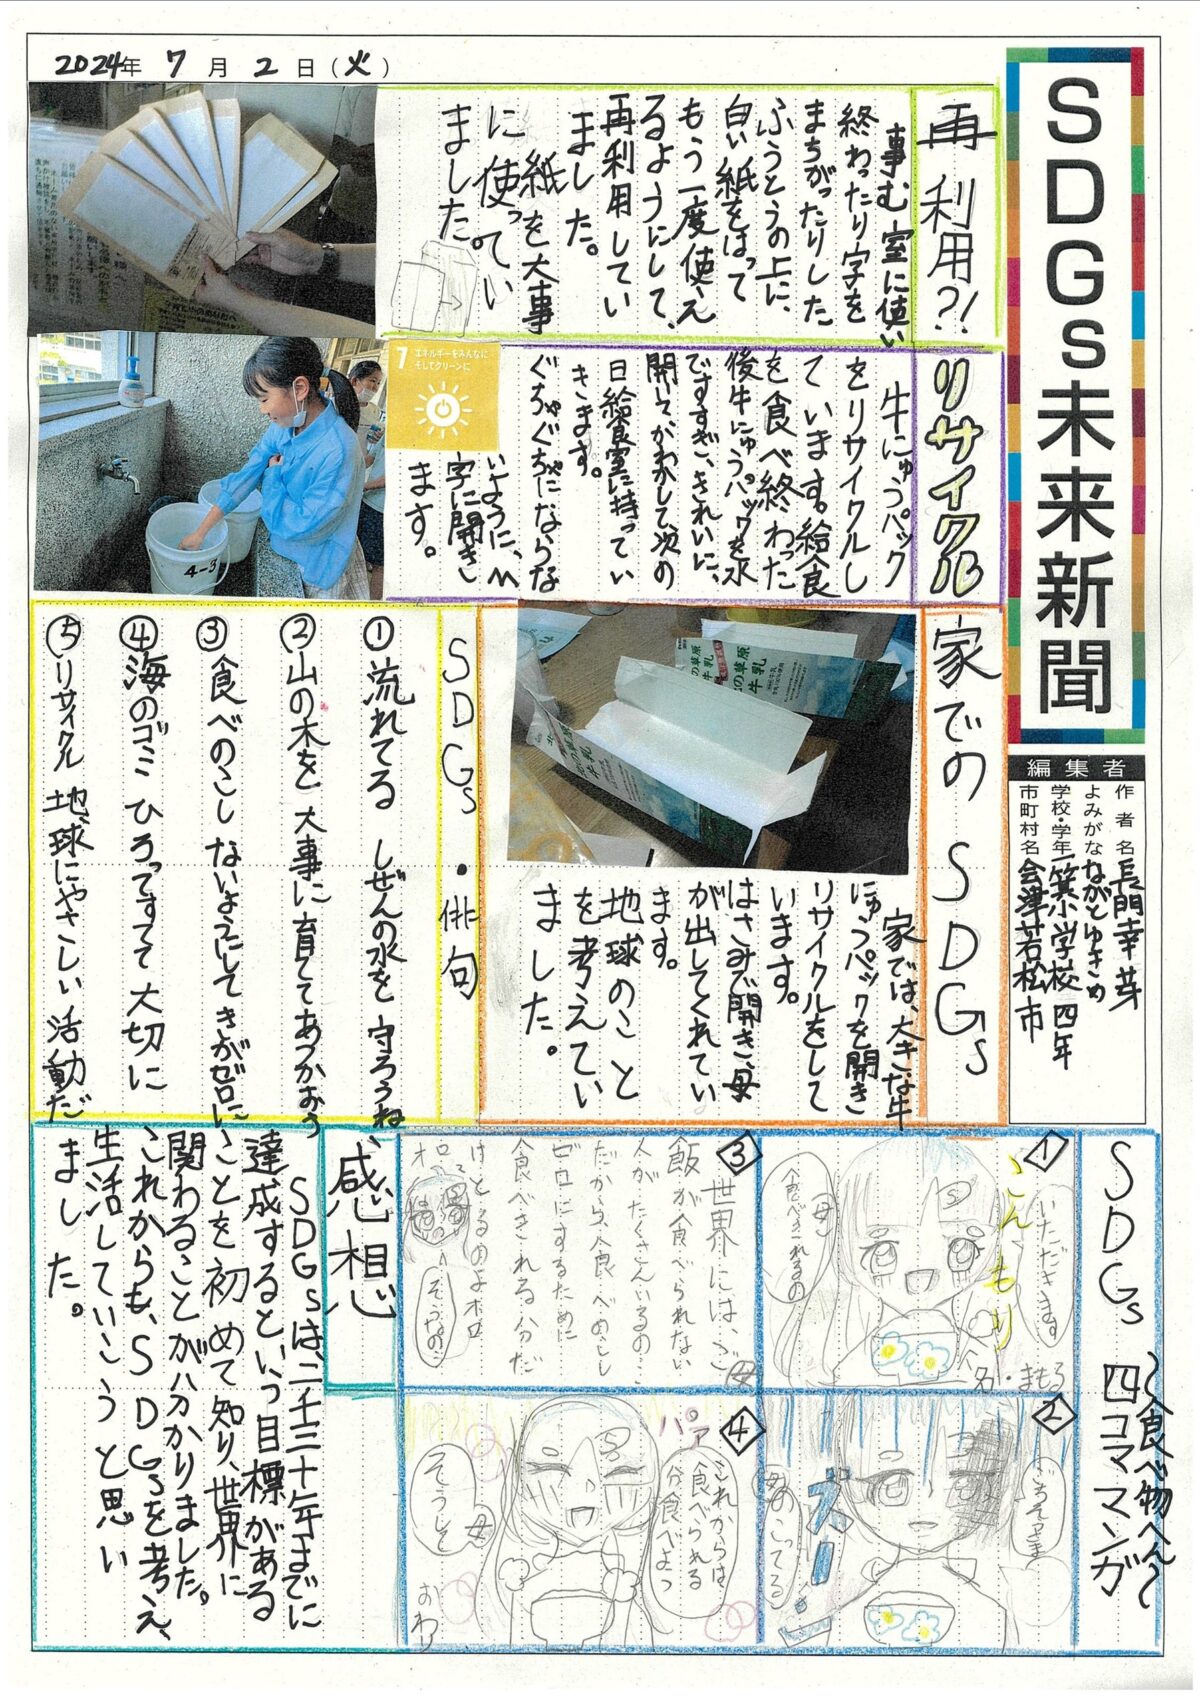 2024年 7月 2日（火）
SDGs未来新聞
編集者
作者名 長門幸芽
よみがな ながとゆきめ
学校・学年 一箕小学校 四年
市町村名 会津若松市
再利用?!
事む室に使い
終わったり字を
まちがったりした
ふうとうの上に、
白い紙をはって
もう一度使え
るようにして、
再利用してい
ました。
紙を大事
に使ってい
ました。
リサイクル
牛にゅうパック
をリサイクルし
ています。給食
を食べ終わった
後牛にゅうパックを水
ですすぎ、きれいに、
開いてかわかして次の
日給食室に持ってい
きます。
ぐちゃぐちゃにならな
いように、M
字に開き
ます。
7 エネルギーをみんなに
そしてクリーンに
4-3
家でのSDGs
家では、大きな牛
にゅうパックを開き
リサイクルをして
います。
はさみで開き、母
が出してくれてい
ます。
地球のこと
を考えてい
ました。
SDGs・俳句
①流れてる しぜんの水を 守ろうね
②山の木を 大事に育てて あつかおう
③食べのこし ないようにして きがゼロに
④海のゴミ ひろってすてて 大切に
⑤リサイクル 地球にやさしい 活動だ
SDGs 四コママンガ
〜食べ物へん〜
①
いただきます
こんもり
名・まもる
母
食べきれるの
②
ごちそうさま
ズーン
のこってる
③
世界には、ご
飯が食べられない
人がたくさんいるの…
だから、食べのこし
ゼロにするために
食べきれる分だ
けとるのよ
ホロ
ホロ
そうなの…
④
パァ
これからは
食べられる
分食べよっ
母
そうして
おわり
感想
SDGsは、二千三十年までに
達成するという目標がある
ことを初めて知り、世界に
関わることがハかりました。
これからも、SDGsを考え、
生活していこうと思い
ました。